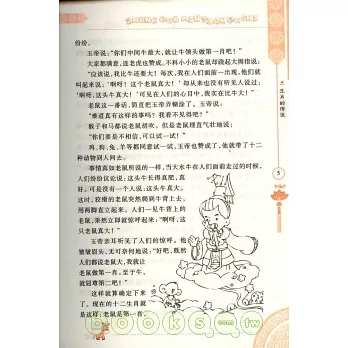 ZHONG GUO MIN JIAN GU SHI
纷纷。
玉帝说："你们中间牛最大，就让牛领头做第一肖吧！"
大家都满意，连老虎也赞成。不料小小的老鼠却跷起大拇指说：
"应该说，我比牛还要大！每次，我在人们面前一出现，他们就
叫起来说：'啊呀！这个老鼠真大！'却从来也没有听见人说过：
'啊呀，这头牛真大！'可见在人们的心目中，我实在比牛大！"
老鼠这一番话，简直把玉帝弄糊涂了。玉帝说：
"难道真有这样的事吗？我看不见得吧！"
猴子和马都说老鼠胡吹。但是老鼠理直气壮地说：
"你们要是不相信，可以试一试！"
鸡、狗、兔、羊等都同意试一试，玉帝也赞成了，他就带了十二
种动物到人间去。
事情真如老鼠所说的一样，当大水牛在人们面前走过的时候，
人们纷纷议论说：这头牛长得真肥，真
好。可是没有一个人说：这头牛真大。
这时，狡猾的老鼠突然爬到牛背上去，
用两脚直立起来。人们一见牛背上的
老鼠，果然立即就惊呼起来："啊呀，这
只老鼠真大！"
玉帝亲耳听见了人们的惊呼。他
皱皱眉头，无可奈何地说："好吧，既然
人们都说老鼠大，我就让
老鼠做第一肖。至于牛，
就屈尊第二吧！"
这样就算确定下来
了。现在的十二生肖就
是这样：老鼠是第一肖。
生肖的传说
5
books.com.tw